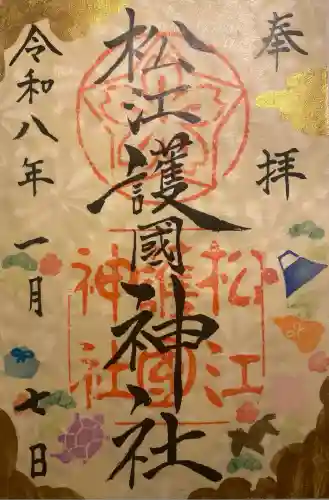 奉拝
松江護國神社
令和八年一月七日
松江
護国
神社